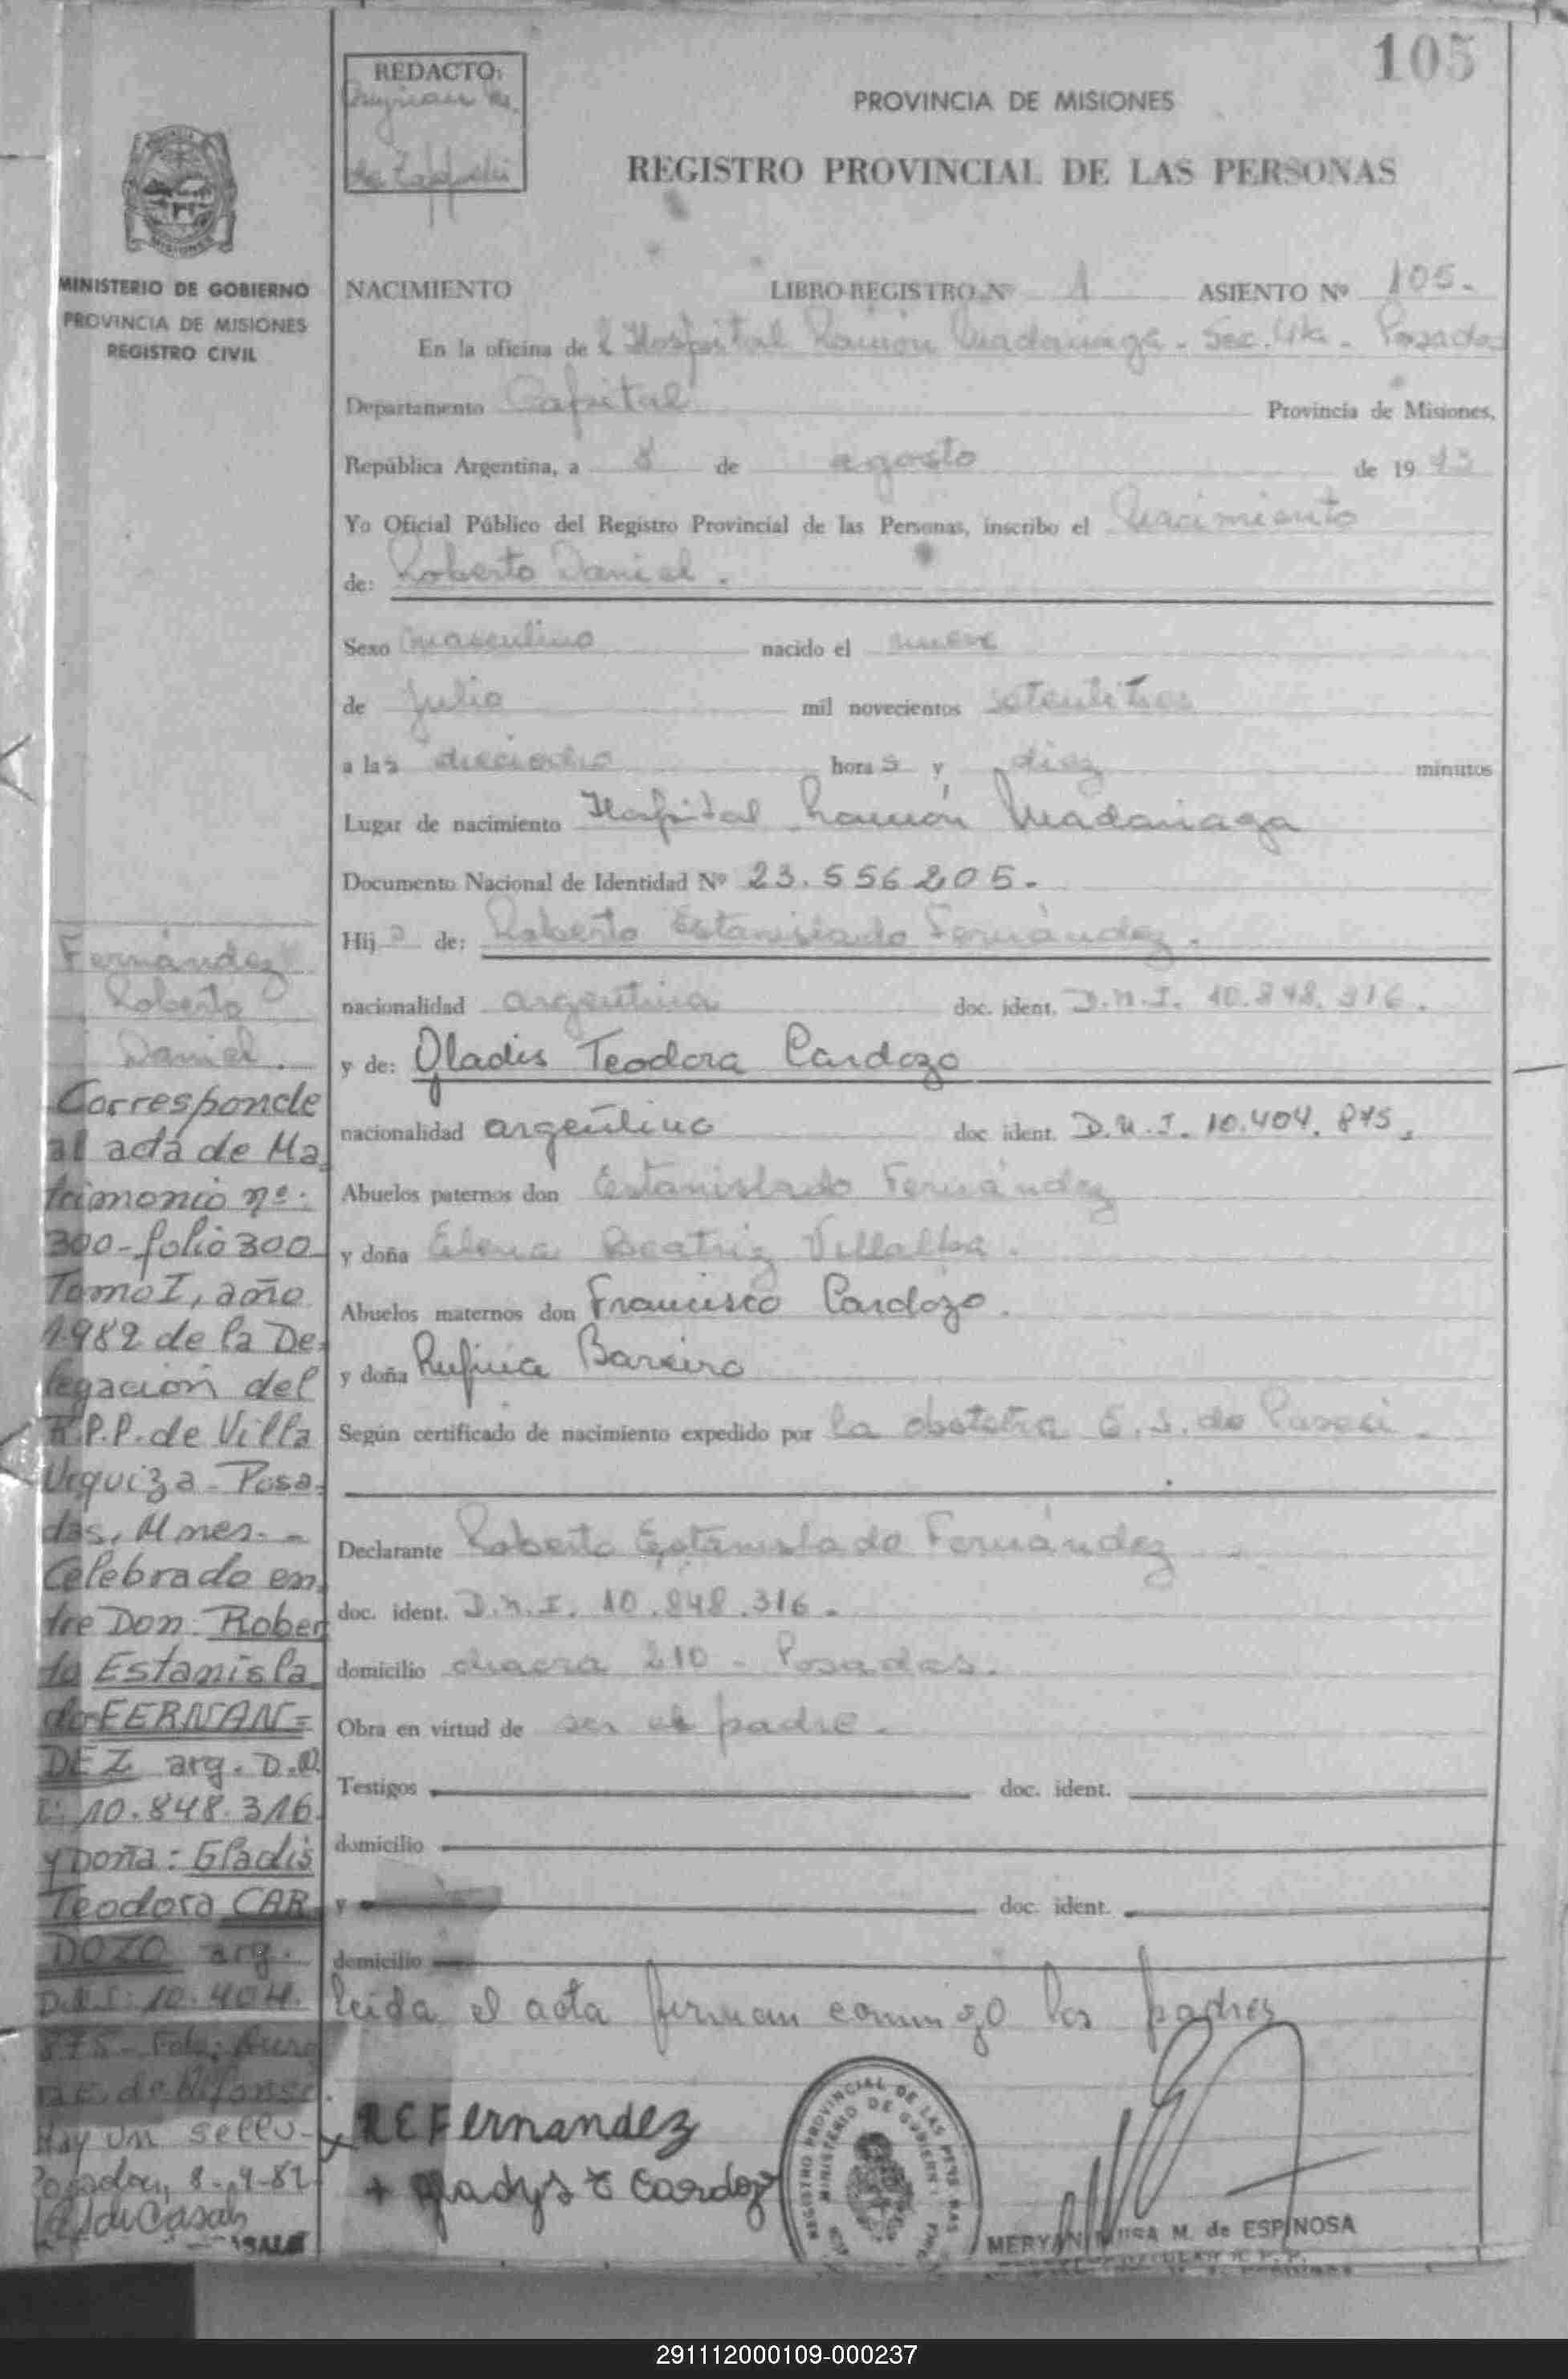 105
REDACTO:
PROVINCIA DE MISIONES
REGISTRO PROVINCIAL DE LAS PERSONAS
MISIONES
MINISTERIO DE GOBIERNO
PROVINCIA DE MISIONES
REGISTRO CIVIL
NACIMIENTO LIBRO REGISTRO Nº 1 ASIENTO Nº 105.
En la oficina del Hospital Ramón Madariaga - Sec. 4ta - Posadas
Departamento Capital Provincia de Misiones,
República Argentina, a 8 de agosto de 19
Yo Oficial Público del Registro Provincial de las Personas, inscribo el Nacimiento
de: Roberto Daniel.
Sexo masculino nacido el nueve
de julio mil novecientos setentitres
a las dieciocho horas y diez minutos
Lugar de nacimiento Hospital Ramón Madariaga
Documento Nacional de Identidad Nº 23.556205.
Hijo de: Roberto Estanislado Fernández.
nacionalidad argentina doc. ident. D.N.I. 10.848.316.
y de: Gladis Teodora Cardozo
nacionalidad argentina doc. ident. D.N.I. 10.404.875.
Abuelos paternos don Estanislado Fernández
y doña Elena Beatriz Villalba.
Abuelos maternos don Francisco Cardozo.
y doña Rufina Bareiro
Según certificado de nacimiento expedido por la obstetra E. S. de
Declarante Roberto Estanislado Fernández
doc. ident. D.N.I. 10.848.316.
domicilio chacra 210 - Posadas.
Obra en virtud de ser el padre.
Testigos doc. ident.
domicilio
y doc. ident.
domicilio
leida el acta firman conmigo los padres
Fernández
Roberto
Daniel.
Corresponde
al acta de Ma
trimonio nº:
300-folio 300
Tomo I, año
1.982 de la De
legación del
R.P.P. de Villa
Urquiza - Posa
das, Mnes. -
Celebrado en
tre Don: Rober
to Estanisla
do FERNAN=
DEZ arg. D.N.
I: 10.848.316
y Doña: Gladis
Teodora CAR
DOZO arg.
D.N.I: 10.404.
875 -
de Alfonso.
Hay un sello -
Posadas, 8-
de Casals
REFernandez
+ gladys T Cardozo
REGISTRO PROVINCIAL DE LAS PERSONAS
MINISTERIO DE GOBIERNO
MERYAN LUISA M. de ESPINOSA
291112000109-000237